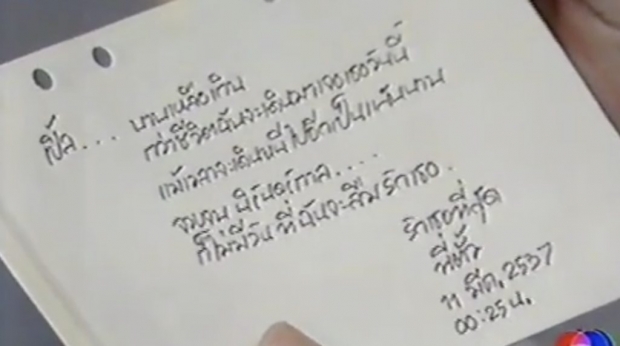 เปิ้ล... นานเหลือเกิน
กว่าชีวิตฉันจะเดินมาเจอเธอวันนี้
แม้เวลาจะเดินหนีไปอีกเป็นแสนนาน
จวบจน นิรันดร์กาล....
ก็ไม่มีวัน ที่ฉันจะลืม รักเธอ.
รักเธอที่สุด
พี่ตั้ว
11 มีค. 2537
00:25 น.